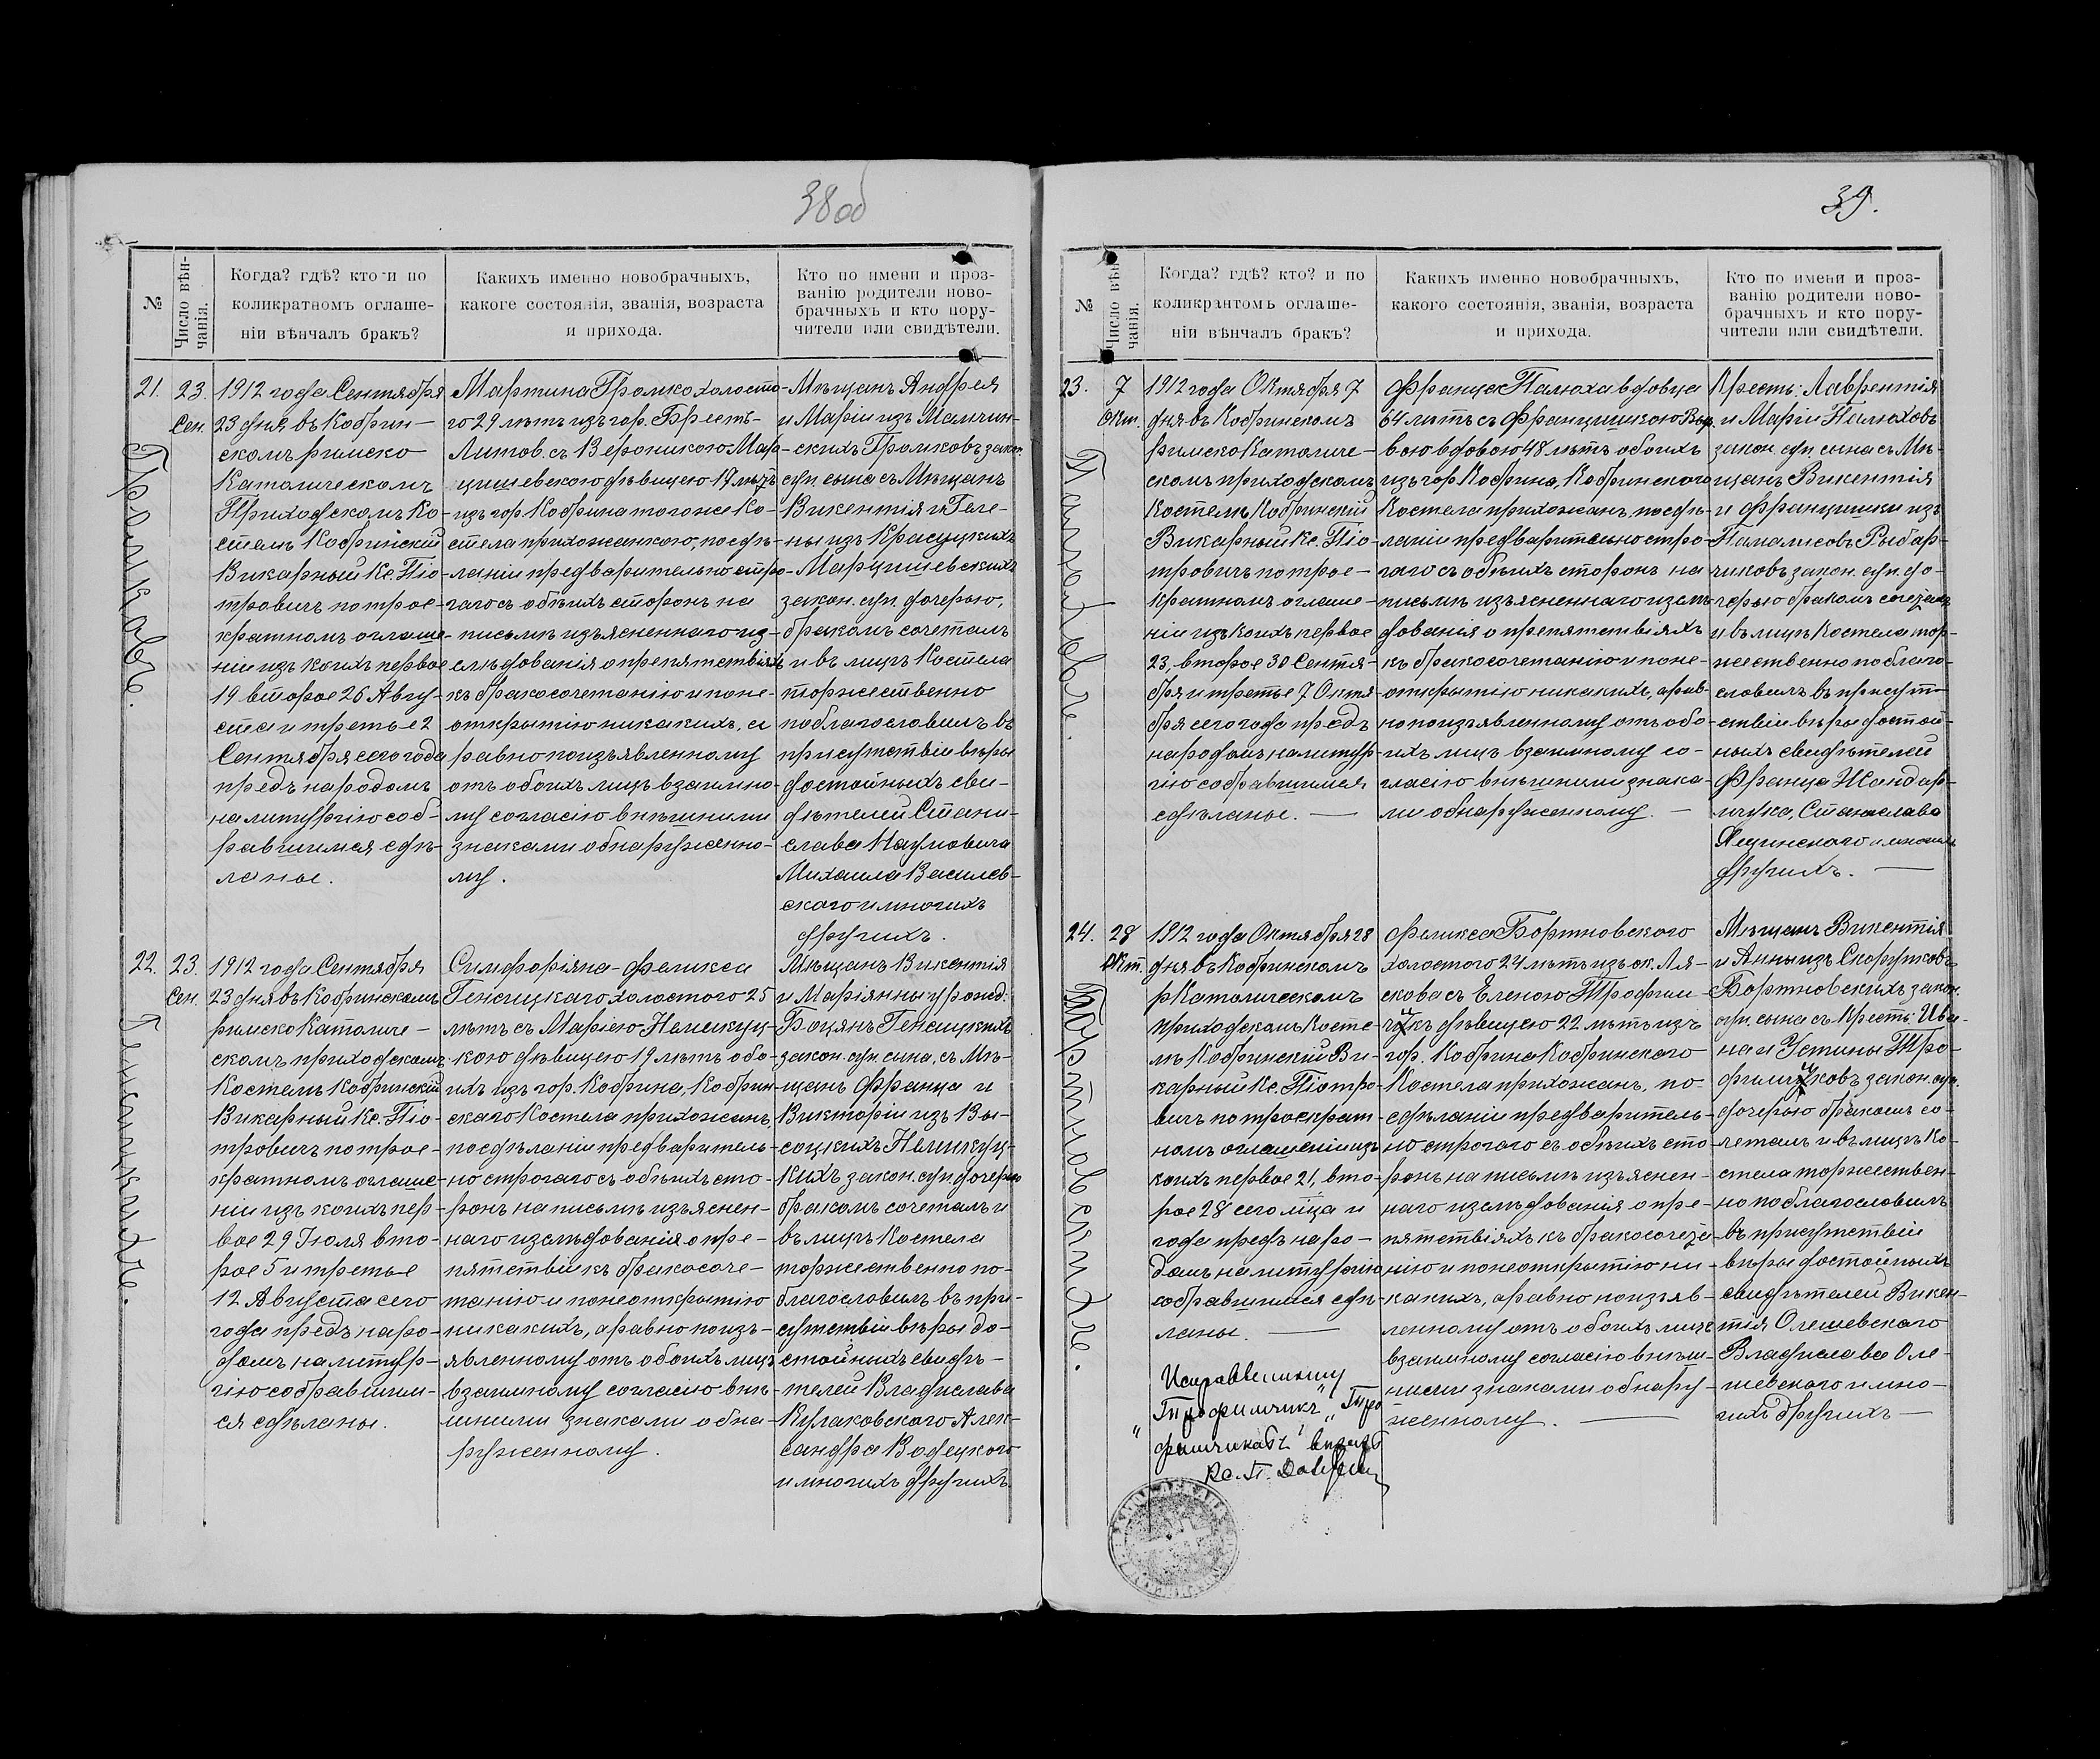 38 об
№
Число вѣн-
чанія.
Когда? гдѣ? кто и по
коликратномъ оглаше-
ніи вѣнчалъ бракъ?
Какихъ именно новобрачныхъ,
какого состоянія, званія, возраста
и прихода.
Кто по имени и проз-
ванію родители ново-
брачныхъ и кто пору-
чители или свидѣтели.
21.
Громковъ.
23.
Сен.
1912 года Сентября
23 дня въ Кобрин-
скомъ римско
Католическомъ
Приходскомъ Ко-
стелѣ Кобринскій
Викарный Кс. Піо-
тровичъ по трое-
кратномъ оглаше-
ніи изъ коихъ первое
19 второе 26 Авгу-
ста и третье 2
Сентября сего года
предъ народомъ
на литургію соб-
равшимся сдѣ-
ланые.
Мартина Громко холосто-
го 29 лѣтъ изъ гор. Брестъ-
Литов. съ Вероникою Мар-
цишевскою дѣвицею 19 лѣтъ
изъ гор. Кобрина того же Ко-
стела прихожанкою, по сдѣ-
ланіи предварительно стро-
гаго съ обѣихъ сторонъ на
письмѣ изъясненнаго из-
слѣдованія о препятствіяхъ
къ бракосочетанію и поне-
открытію никакихъ, а
равно по изъявленному
отъ обоихъ лицъ взаимно-
му согласію внѣшними
знаками обнаруженно-
му.
Мѣщанъ Андрея
и Маріи изъ
скихъ Громковъ закон.
суп. сына съ Мѣщанъ
Викентія и Геле-
ны изъ Красуцкихъ
Марцишевскихъ
закон. суп. дочерью,
бракомъ сочеталъ
и въ лицѣ Костела
торжественно
поблагословилъ въ
присутствіи вѣры
достойныхъ сви-
дѣтелей Стани-
слава Наумовича
Михаила Василев-
скаго и многихъ
другихъ.
22.
Генсицкихъ.
23.
Сен.
1912 года Сентября
23 дня въ Кобринскомъ
римско Католиче-
скомъ приходскомъ
Костелѣ Кобринскій
Викарный Кс. Піо-
тровичъ по трое-
кратномъ оглаше-
ніи изъ коихъ пер-
вое 29 Іюля вто-
рое 5 и третье
12 Августа сего
года предъ наро-
домъ на литур-
гію собравшим-
ся сдѣланы.
Симфоріяна-Феликса
Генсицкаго холостого 25
лѣтъ съ Маріею Немикуц-
кою дѣвицею 19 лѣтъ обо-
ихъ изъ гор. Кобрина, Кобрин-
скаго Костела прихожанъ,
по сдѣланіи предваритель-
но строгаго съ обѣихъ сто-
ронъ на письмѣ изъяснен-
наго изслѣдованія о пре-
пятствій къ бракосоче-
танію и понеоткрытію
никакихъ, а равно по изъ-
явленному отъ обоихъ лицъ
взаимному согласію внѣ-
шними знаками обна-
руженному.
Мѣщанъ Викентія
и Маріянны урожд.
Боцянъ Генсицкихъ
закон. суп. сына, съ Мѣ-
щанъ Франца и
Викторіи изъ Вы-
соцкихъ Немикуц-
кихъ закон. суп. дочерью
бракомъ сочеталъ и
въ лицѣ Костела
торжественно по-
благословилъ въ при-
сутствіи вѣры до-
стойныхъ свидѣ-
телей Владислава
Кулаковскаго Алек-
сандра Водецкого
и многихъ другихъ.
39.
№
Число вѣн-
чанія.
Когда? гдѣ? кто? и по
коликрантомъ оглаше-
ніи вѣнчалъ бракъ?
Какихъ именно новобрачныхъ,
какого состоянія, званія, возраста
и прихода.
Кто по имени и проз-
ванію родители ново-
брачныхъ и кто пору-
чители или свидѣтели.
23.
Палюховъ.
7
Окт.
1912 года Октября 7
дня въ Кобринскомъ
римско Католиче-
скомъ приходскомъ
Костелѣ Кобринскій
Викарный Кс. Піо-
тровичъ по трое-
кратномъ оглаше-
ніи изъ коихъ первое
23, второе 30 Сентя-
бря и третье 7 Октя-
бря сего года предъ
народомъ на литур-
гію собравшимся
сдѣланые.
Франца Палюха вдовца
64 лѣтъ съ Францишкою
вою вдовою 48 лѣтъ обоихъ
изъ гор Кобрина, Кобринскаго
Костела прихожанъ, по сдѣ-
ланіи предварительно стро-
гаго съ обѣихъ сторонъ на
письмѣ изъясненнаго изслѣ-
дованія о препятствіяхъ
къ бракосочетанію и поне-
открытію никакихъ, арав-
но по изъявленному отъ обо-
ихъ лицъ взаимному со-
гласію внѣшними знака-
ми обнаруженному.
Крестъ. Лаврентія
и Маріи Палюховъ
закон. суп. сына съ Мѣ-
щанъ Викентія
и Францишки изъ
Рыбар-
чиковъ закон. суп. до-
черью бракомъ сочеталъ
и въ лицѣ Костела тор-
жественно поблаго-
словилъ въ присут-
ствіи вѣры достой-
ныхъ свидѣтелей
Франца Жандар-
мука, Станислава
и многихъ
другихъ.
24.
Бортновскихъ.
28
Окт.
1912 года Октября 28
дня въ Кобринскомъ
р Католическомъ
приходскомъ Косте-
лѣ Кобринскій Ви-
карный Кс. Піотро-
вичъ по троекрат-
номъ оглашеніи изъ
коихъ первое 21, вто-
рое 28 сего мѣца и
года предъ наро-
домъ на литургію
собравшимся сдѣ-
ланы.
Исправленному
"Трофимчикъ" "Тро
фимчиковъ" вѣрить
Кс. П.
Феликса Бортновского
холостого 24 лѣтъ изъ ок. Ля-
скова съ Еленою Трофим-
чукъ дѣвицею 22 лѣтъ изъ
гор. Кобрина Кобринскаго
Костела прихожанъ, по
сдѣланіи предваритель-
но строгаго съ обѣихъ сто-
ронъ на письмѣ изъяснен-
наго изслѣдованія о пре-
пятствіяхъ къ бракосочета-
нію и понеоткрытію ни-
какихъ, а равно по изъяв-
ленному отъ обоихъ лицъ
взаимному согласію внѣш-
ними знаками обнару-
женному.
Мѣщанъ Викентія
и Анны изъ Скорутковъ
Бортновскихъ закон.
суп. сына съ Крестъ. Ива-
на и Устины Тро-
фимчуковъ закон. суп.
дочерью бракомъ со-
четалъ и въ лицѣ Ко-
стела торжествен-
но поблагословилъ
въ присутствіи
вѣры достойныхъ
свидѣтелей Викен-
тія Олешевскаго
Владислава Оле-
шевскаго и мно-
гихъ другихъ